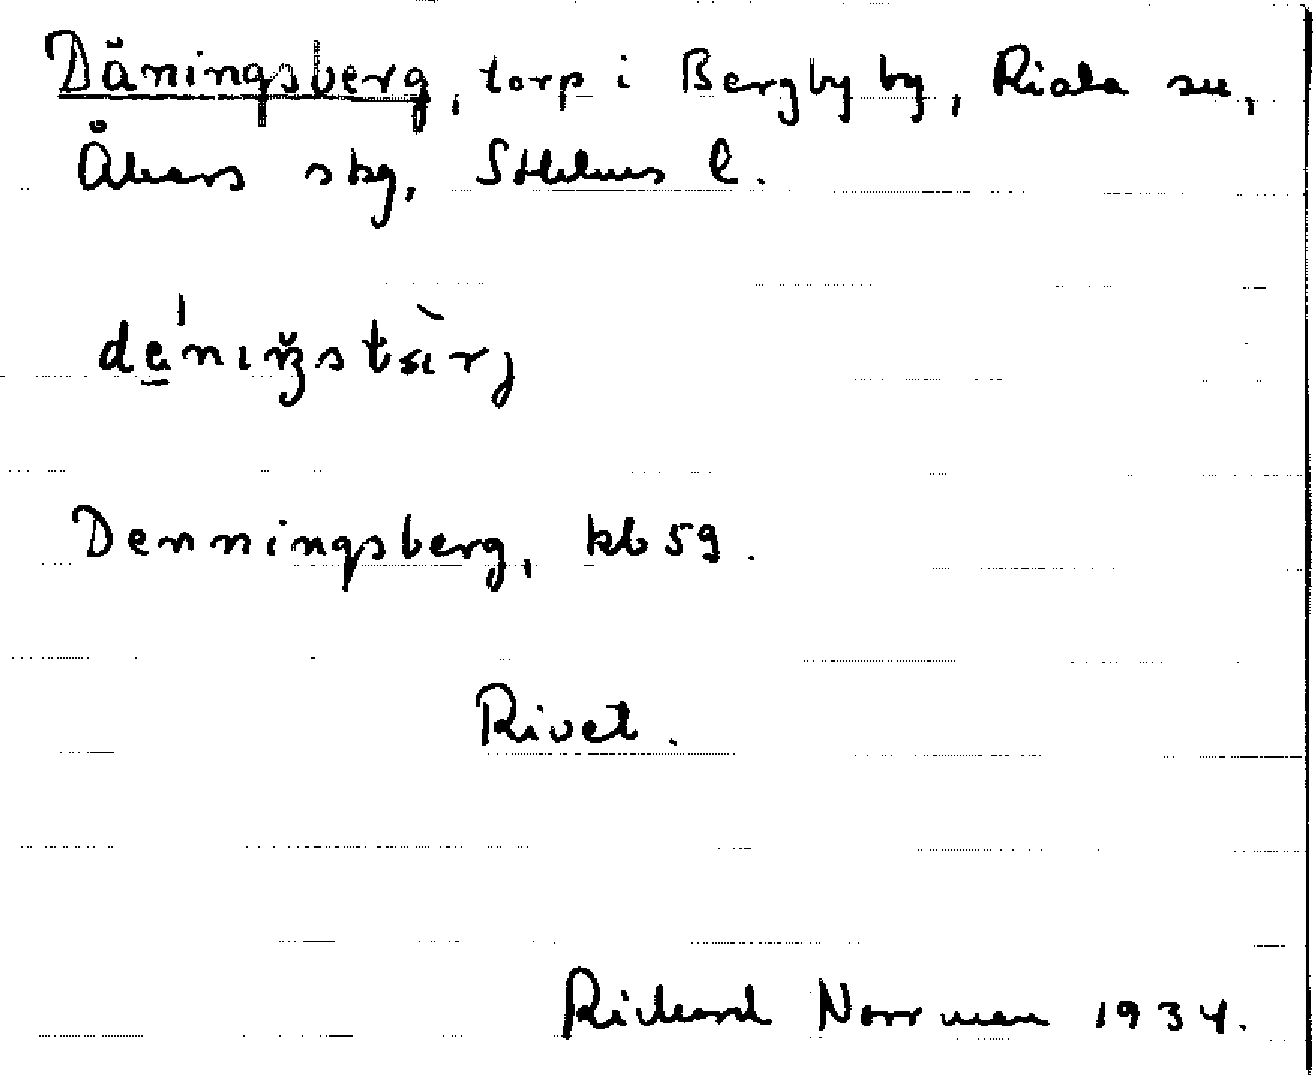 Däningsberg, torp i Bergby by, Riala sn,
Åkers skg, Sthlms l.
Denningsberg, kb 59.
Rivet.
Richard Norrman 1934.